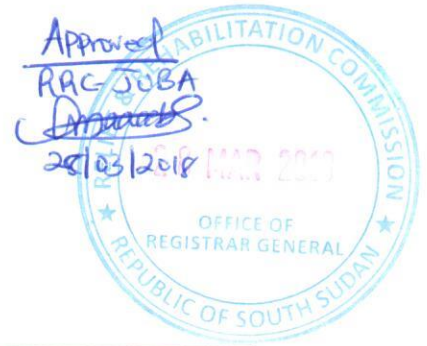 Approved
RRC-JUBA
28/03/2018
RELIEF & REHABILITATION COMMISSION
MAR
OFFICE OF
REGISTRAR GENERAL
REPUBLIC OF SOUTH SUDAN